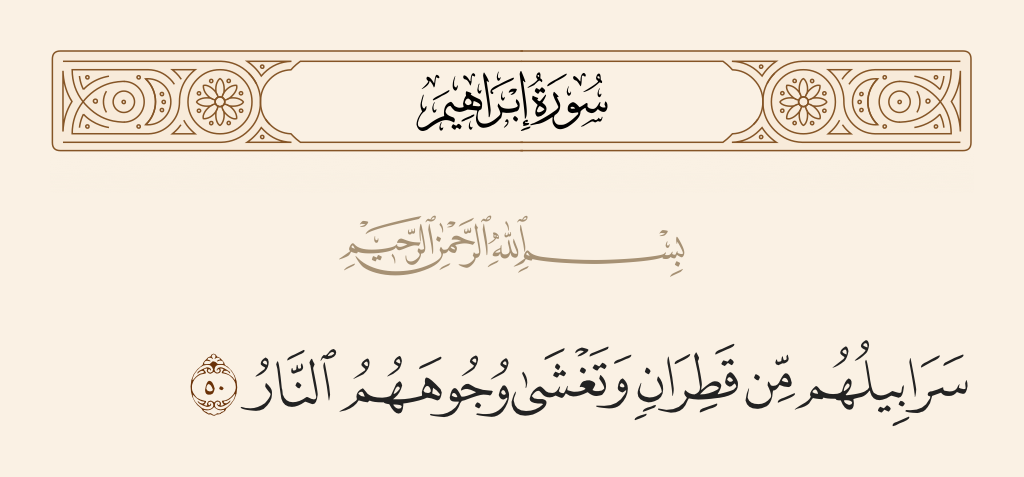 سُورَةُ إِبْرَاهِيمَ
بِسْمِ ٱللَّهِ ٱلرَّحْمَٰنِ ٱلرَّحِيمِ
سَرَابِيلُهُم مِّن قَطِرَانٍ وَتَغْشَىٰ وُجُوهَهُمُ ٱلنَّارُ ٥٠